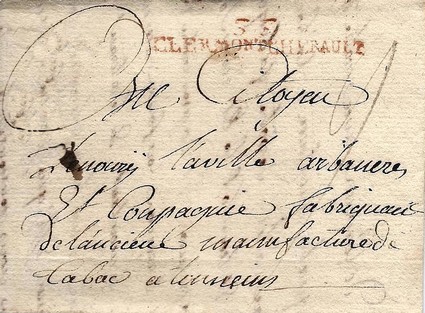 33
CLERMONT L'HERAULT
Citoyen
laville arbaneres
Et Compagnie fabriquan
de lanciene manufacture de
tabac a tonneins